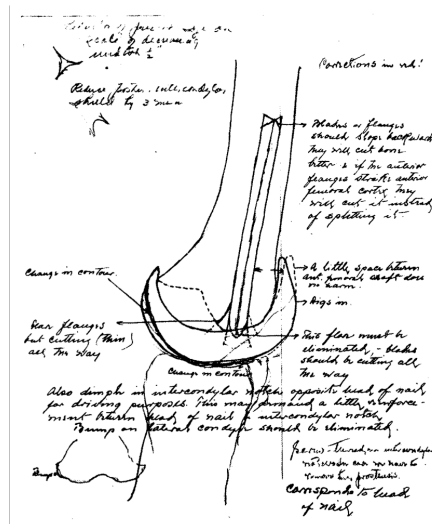 scale of decrease
width ½"
Corrections in red!
Reduce further intercondylar
shield by 3 mm
Blades or flanges
should slope backward
They will cut bone
better & if the anterior
flanges strike anterior
femoral cortex they
will cut it instead
of splitting it.
Change in contour.
A little space between
ant. femoral shaft does
no harm.
Rear flanges
but cutting (thin)
all the way
This flare must be
eliminated, - blades
should be cutting all
the way
Change in contour
Also dimple in intercondylar notch opposite head of nail
for driving purposes. This may demand a little reinforce-
ment between head of nail & intercondylar notch.
Bump on lateral condyle should be eliminated.
Bump
corresponds to head
of nail